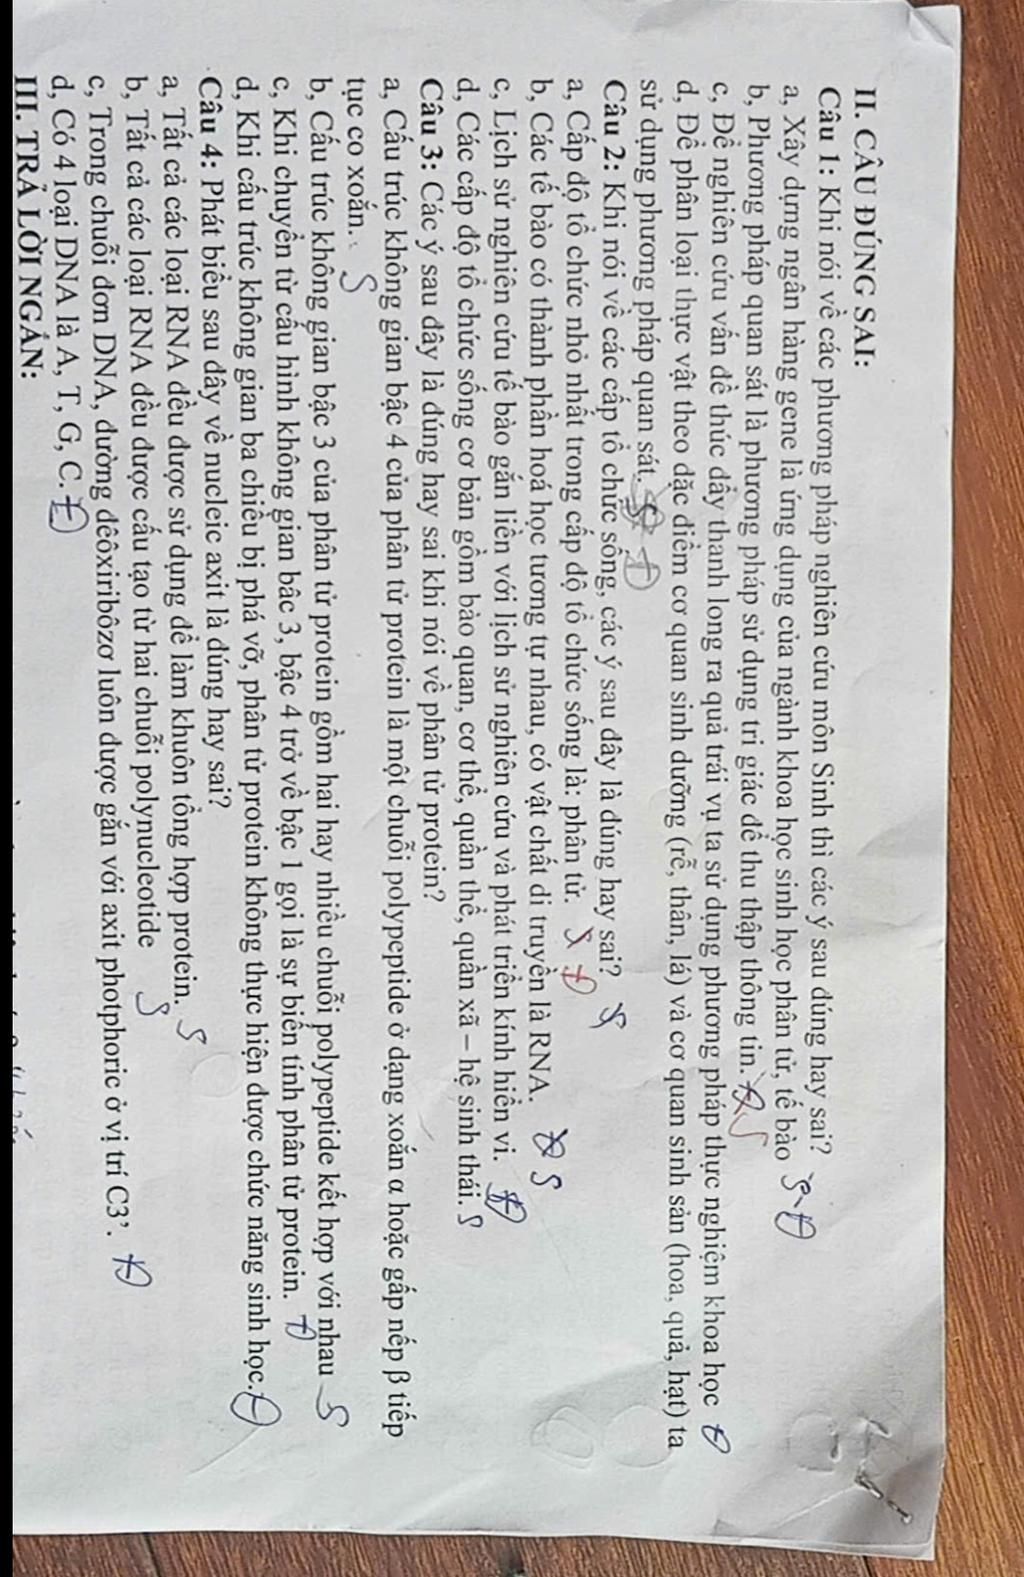 II. CÂU ĐÚNG SAI:
Câu 1: Khi nói về các phương pháp nghiên cứu môn Sinh thì các ý sau đúng hay sai?
a, Xây dựng ngân hàng gene là ứng dụng của ngành khoa học sinh học phân tử, tế bào S Đ
b, Phương pháp quan sát là phương pháp sử dụng tri giác để thu thập thông tin. Đ S
c, Để nghiên cứu vấn đề thúc đẩy thanh long ra quả trái vụ ta sử dụng phương pháp thực nghiệm khoa học Đ
d, Để phân loại thực vật theo đặc điểm cơ quan sinh dưỡng (rễ, thân, lá) và cơ quan sinh sản (hoa, quả, hạt) ta
sử dụng phương pháp quan sát. S Đ
Câu 2: Khi nói về các cấp tổ chức sống, các ý sau đây là đúng hay sai? S
a, Cấp độ tổ chức nhỏ nhất trong cấp độ tổ chức sống là: phân tử. S Đ
b, Các tế bào có thành phần hoá học tương tự nhau, có vật chất di truyền là RNA. Đ S
c, Lịch sử nghiên cứu tế bào gắn liền với lịch sử nghiên cứu và phát triển kính hiển vi. Đ
d, Các cấp độ tổ chức sống cơ bản gồm bào quan, cơ thể, quần thể, quần xã – hệ sinh thái. S
Câu 3: Các ý sau đây là đúng hay sai khi nói về phân tử protein?
a, Cấu trúc không gian bậc 4 của phân tử protein là một chuỗi polypeptide ở dạng xoắn α hoặc gấp nếp β tiếp
tục co xoắn. S
b, Cấu trúc không gian bậc 3 của phân tử protein gồm hai hay nhiều chuỗi polypeptide kết hợp với nhau S
c, Khi chuyển từ cấu hình không gian bâc 3, bậc 4 trở về bậc 1 gọi là sự biến tính phân tử protein. Đ
d, Khi cấu trúc không gian ba chiều bị phá vỡ, phân tử protein không thực hiện được chức năng sinh học. Đ
Câu 4: Phát biểu sau đây về nucleic axit là đúng hay sai?
a, Tất cả các loại RNA đều được sử dụng để làm khuôn tổng hợp protein. S
b, Tất cả các loại RNA đều được cấu tạo từ hai chuỗi polynucleotide S
c, Trong chuỗi đơn DNA, đường đêôxiribôzơ luôn được gắn với axit photphoric ở vị trí C3’. Đ
d, Có 4 loại DNA là A, T, G, C. Đ
III. TRẢ LỜI NGẮN: